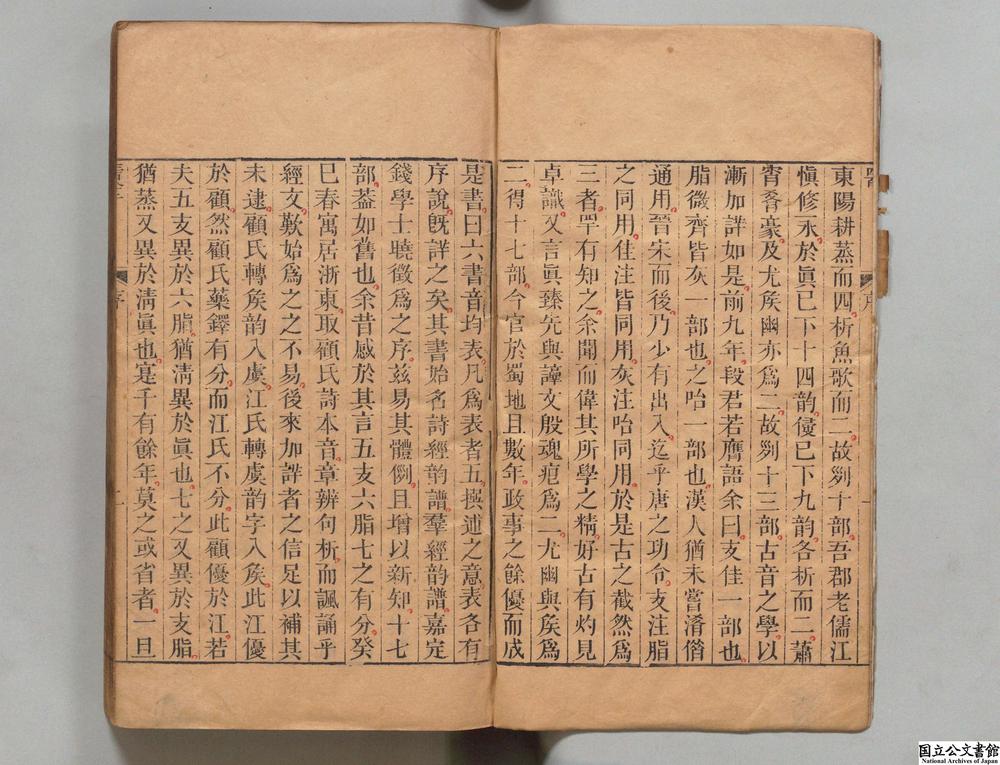 東陽耕蒸而四析魚歌而二故列十部吾郡老儒江
愼修永於眞已下十四韵侵已下九韵各析而二蕭
宵肴豪及尤矦幽亦爲二故列十三部古音之學以
漸加詳如是前九年段君若膺語余曰支佳一部也
脂微齊皆灰一部也之咍一部也漢人猶未嘗淆借
通用晉宋而後乃少有出入迄乎唐之功令支注脂
之同用佳注皆同用灰注咍同用於是古之截然爲
三者罕有知之余聞而偉其所學之精好古有灼見
卓識又言眞臻先與諄文殷魂痕爲二尤幽與矦爲
二得十七部今官於蜀地且數年政事之餘優而成
是書曰六書音均表凡爲表者五撰述之意表各有
序說旣詳之矣其書始名詩經韵譜羣經韵譜嘉定
錢學士曉徵爲之序兹易其體例且增以新知十七
部葢如舊也余昔感於其言五支六脂七之有分癸
巳春寓居浙東取顧氏詩本音章辨句析而諷誦乎
經文歎始爲之之不易後來加詳者之信足以補其
未逮顧氏轉矦韵入虞江氏轉虞韵字入矦此江優
於顧然顧氏藥鐸有分而江氏不分此顧優於江若
夫五支異於六脂猶淸異於眞也七之又異於支脂
猶蒸又異於淸眞也寔千有餘年莫之或省者一旦
序
二
国立公文書館
National Archives of Japan